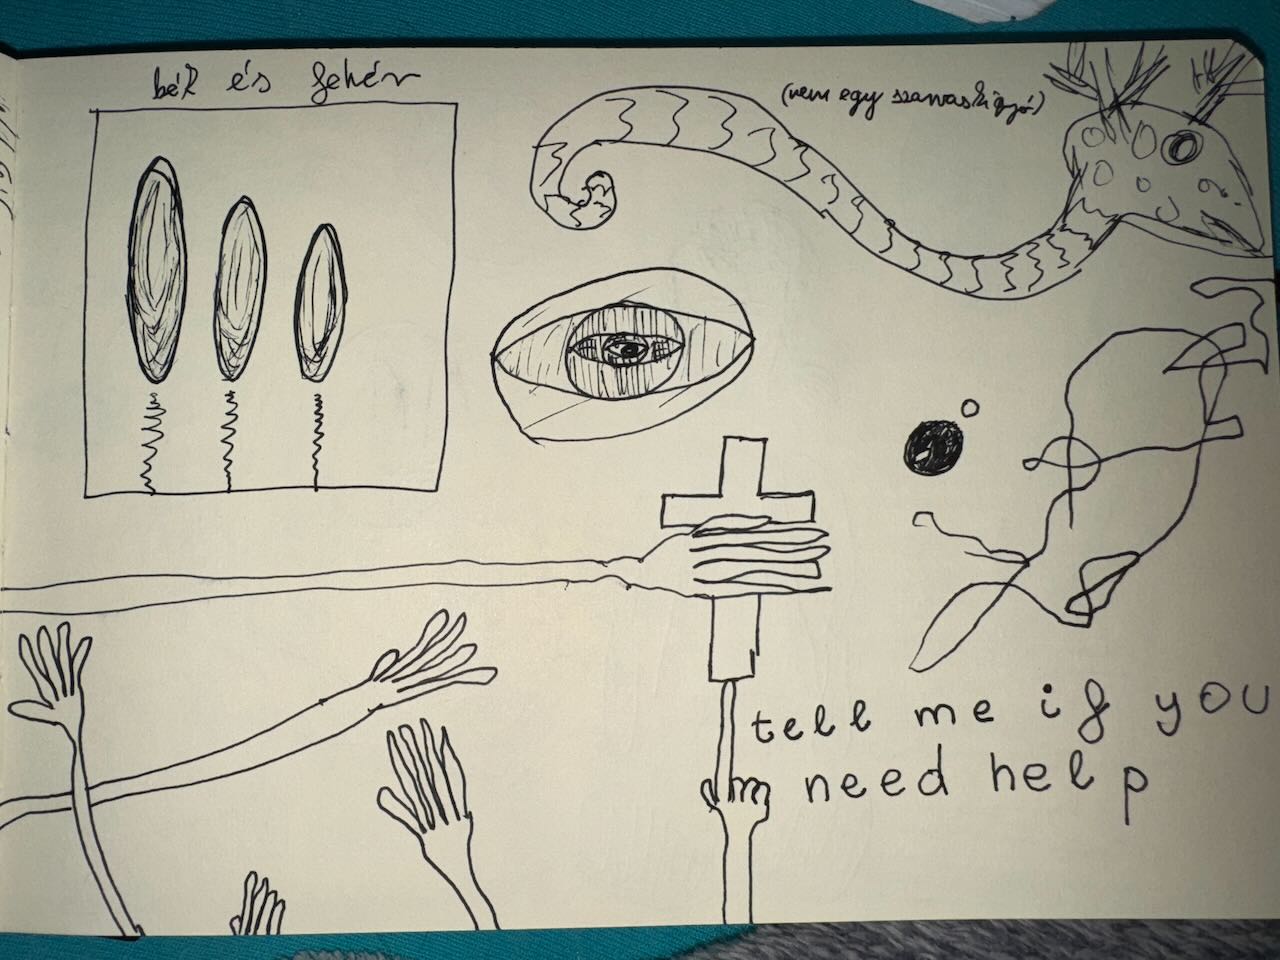 és fehér
(nem egy szarvaskígyó)
tell me if you
need help